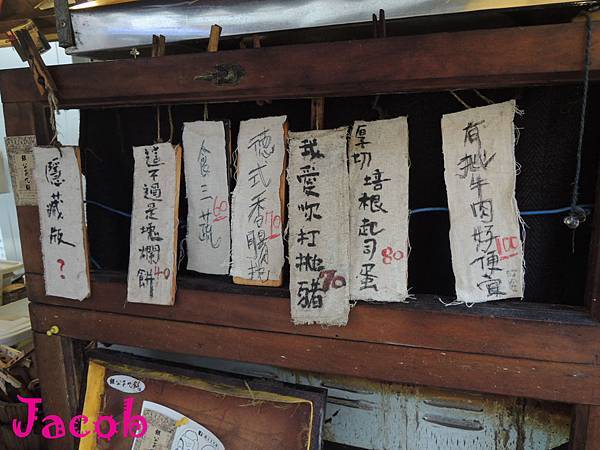 隱藏版
?
這不過是塊爛餅
40
食三蔬
60
德式香腸
70
我愛你打拋豬
70
厚切
培根起司蛋
80
有批牛肉好便宜
100
Jacob